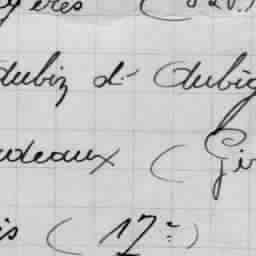 gères (
dubiz d' Aubig
rdeaux ( Gir
is ( 17e )